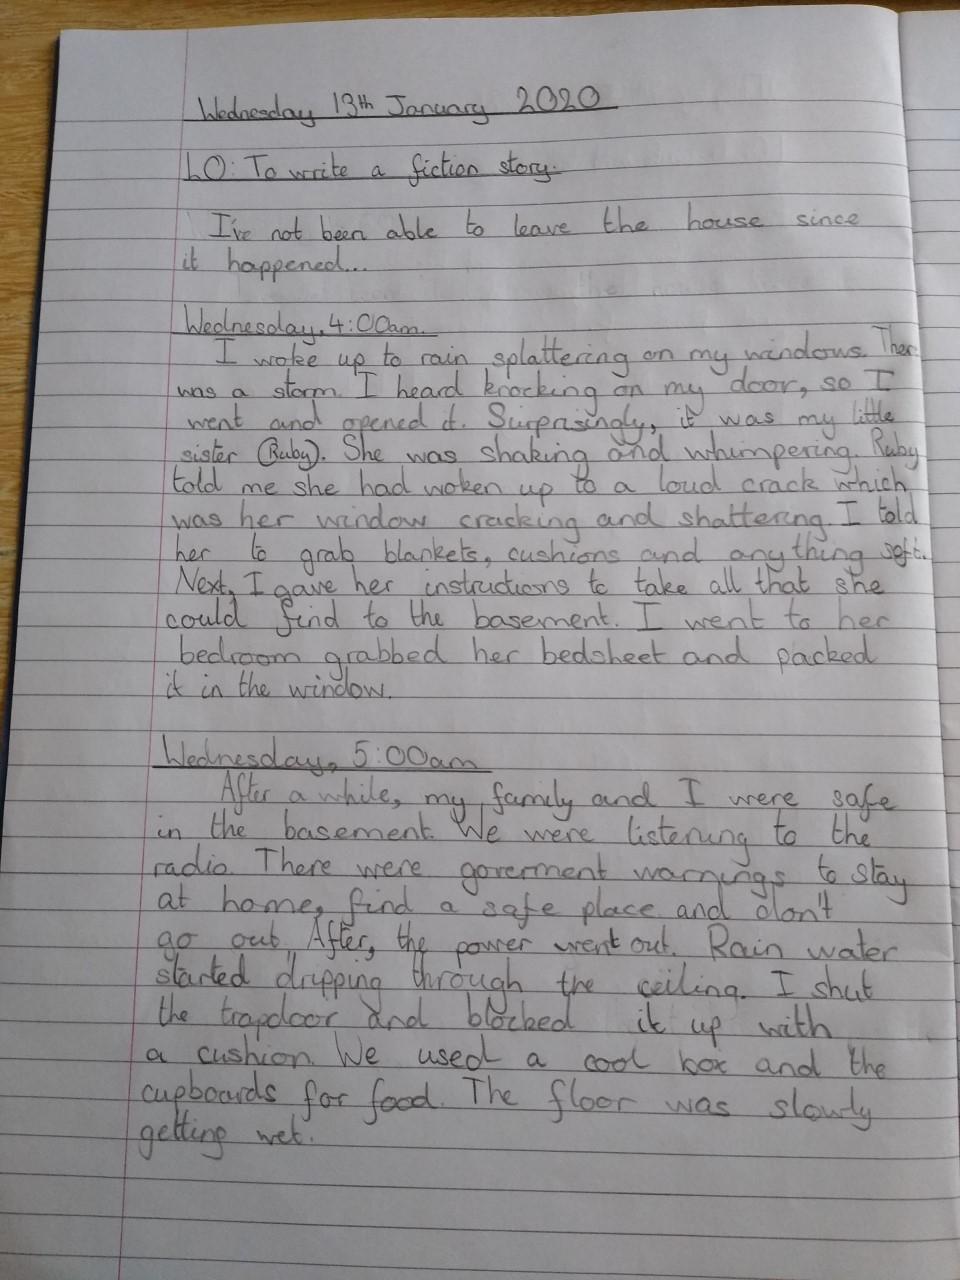 Wednesday 13th January 2020
LO: To write a fiction story.
I've not been able to leave the house since
it happened...
Wednesday, 4:00am.
I woke up to rain splattering on my windows. Ther
was a storm. I heard knocking on my door, so I
went and opened it. Surprisingly, it was my little
sister (Ruby). She was shaking and whimpering. Ruby
told me she had woken up to a loud crack which
was her window cracking and shattering. I told
her to grab blankets, cushions and anything soft.
Next, I gave her instructions to take all that she
could find to the basement. I went to her
bedroom grabbed her bedsheet and packed
it in the window.
Wednesday, 5:00am
After a while, my family and I were safe
in the basement. We were listening to the
radio. There were goverment warnings to stay
at home, find a safe place and don't
go out. After, the power went out. Rain water
started dripping through the ceiling. I shut
the trapdoor and blocked it up with
a cushion. We used a cool box and the
cupboards for food. The floor was slowly
getting wet.